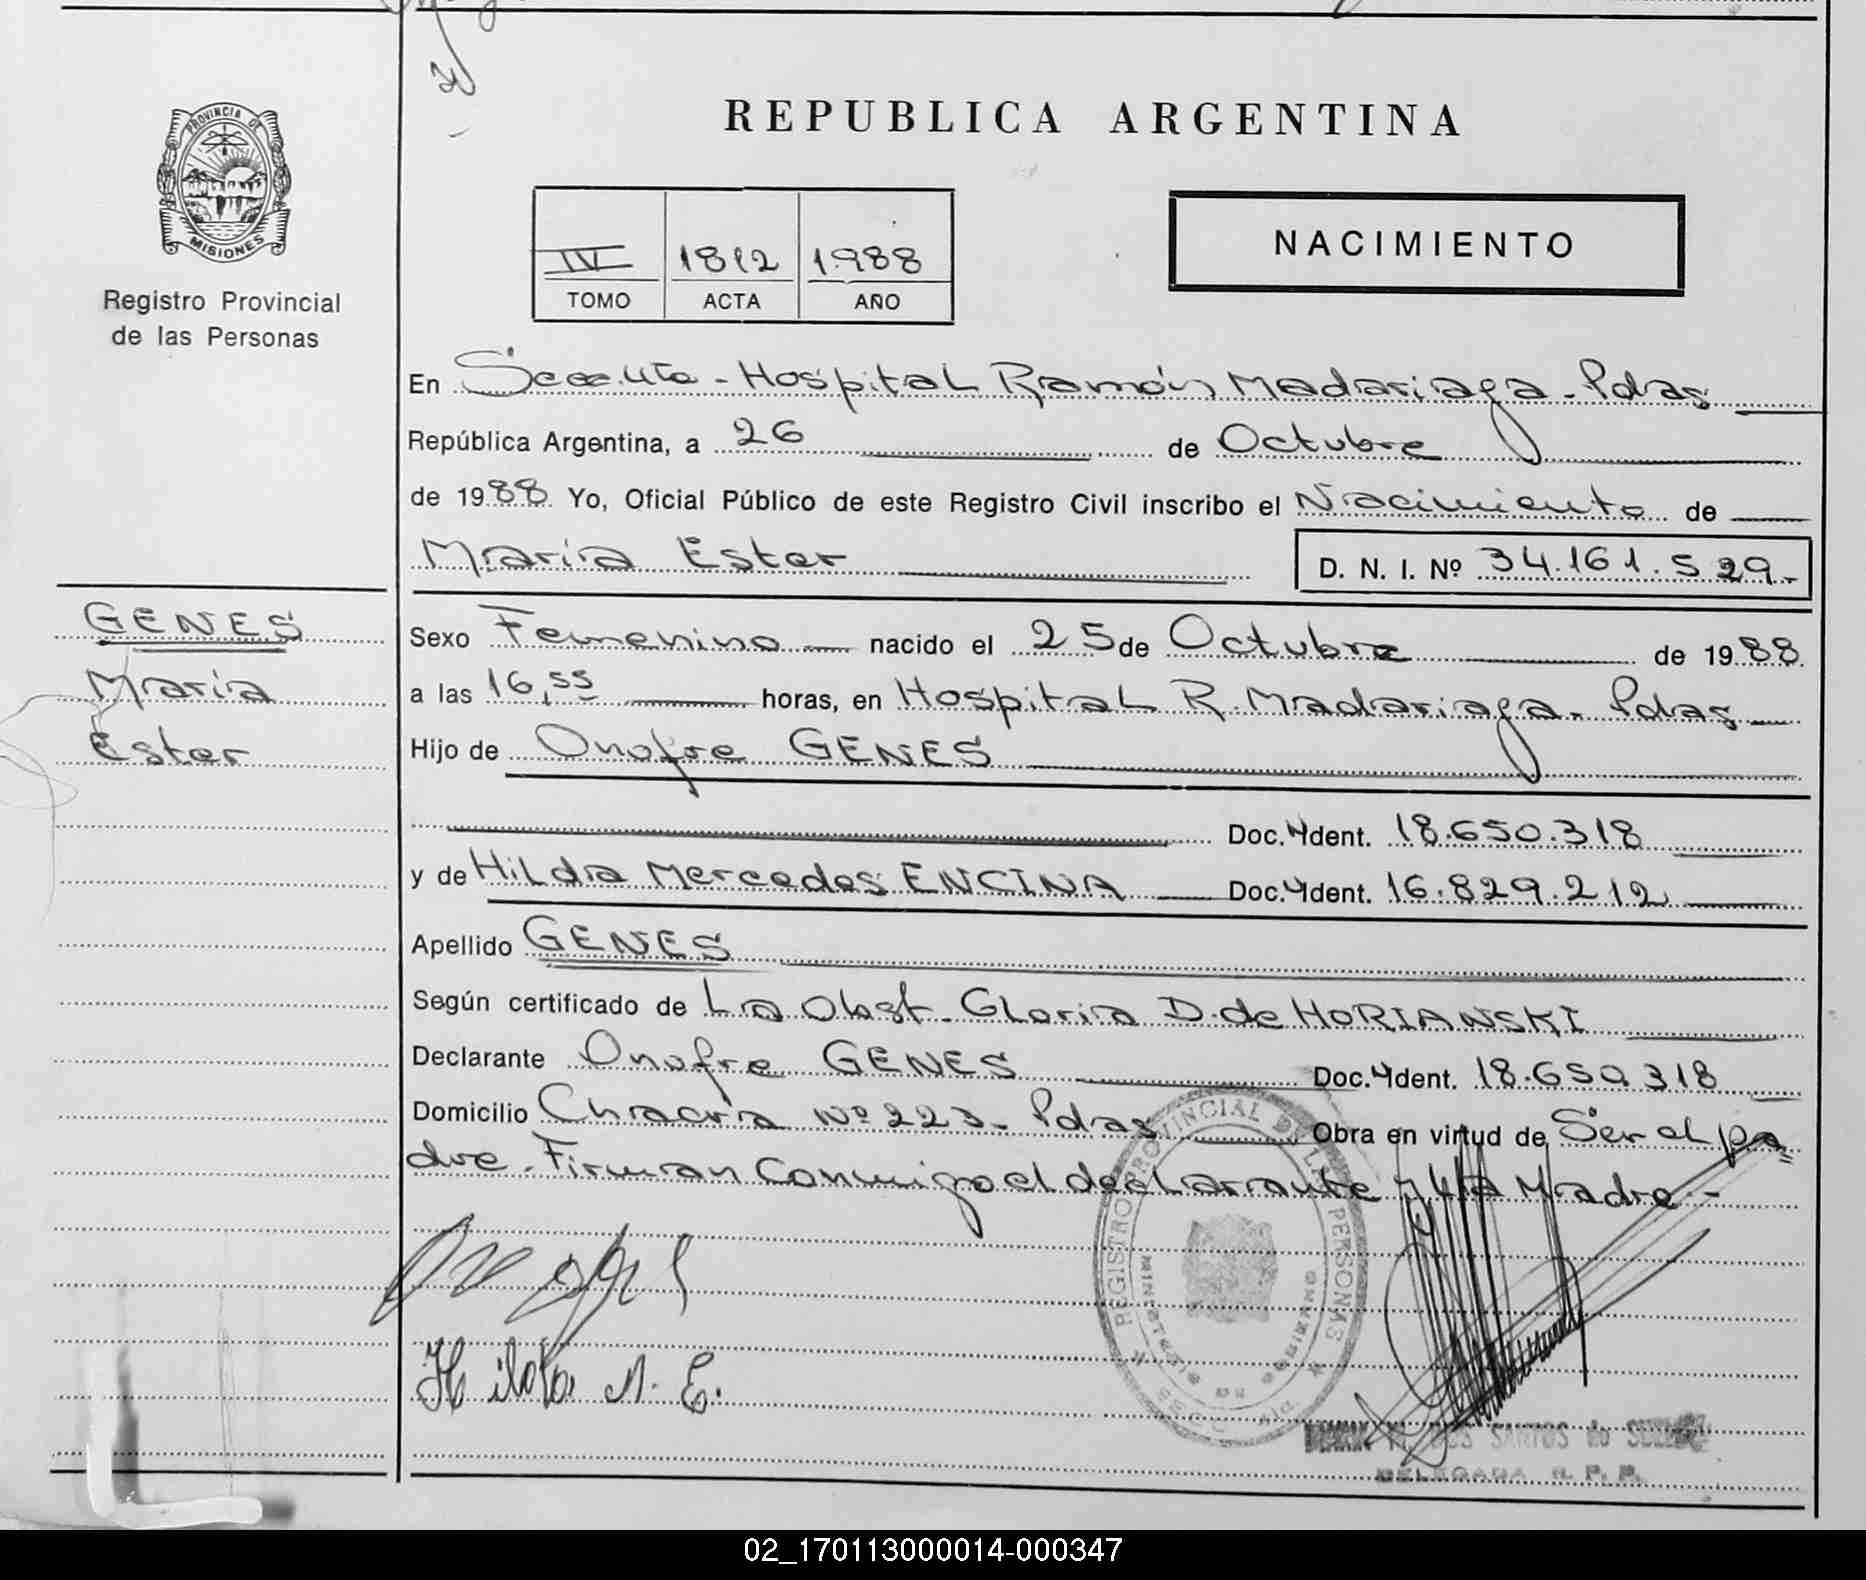 PROVINCIA DE
MISIONES
Registro Provincial
de las Personas
REPUBLICA ARGENTINA
IV 1812 1988
TOMO ACTA AÑO
NACIMIENTO
En - Hospital Ramón Madariaga - Pdas
República Argentina, a 26 de Octubre
de 1988 Yo, Oficial Público de este Registro Civil inscribo el Nacimiento de
María Ester D. N. I. Nº 34.161.529.-
GENES
María
Ester
Sexo Femenino nacido el 25 de Octubre de 1988
a las 16,55 horas, en Hospital R. Madariaga - Pdas
Hijo de Onofre GENES
Doc. Ident. 18.650.318
y de Hilda Mercedes ENCINA Doc. Ident. 16.829.212
Apellido GENES
Según certificado de La Obst. Gloria D. de HORIANSKI
Declarante Onofre GENES Doc. Ident. 18.650.318
Domicilio Chacra Nº 223 - Pdas Obra en virtud de Ser el pa
dre - Firman Conmigo el declarante y la Madre -
REGISTRO PROVINCIAL DE LAS PERSONAS
MINISTERIO DE GOBIERNO
Hilda M. E.
DOS SANTOS de
DELEGADA R. P. P.
02_170113000014-000347